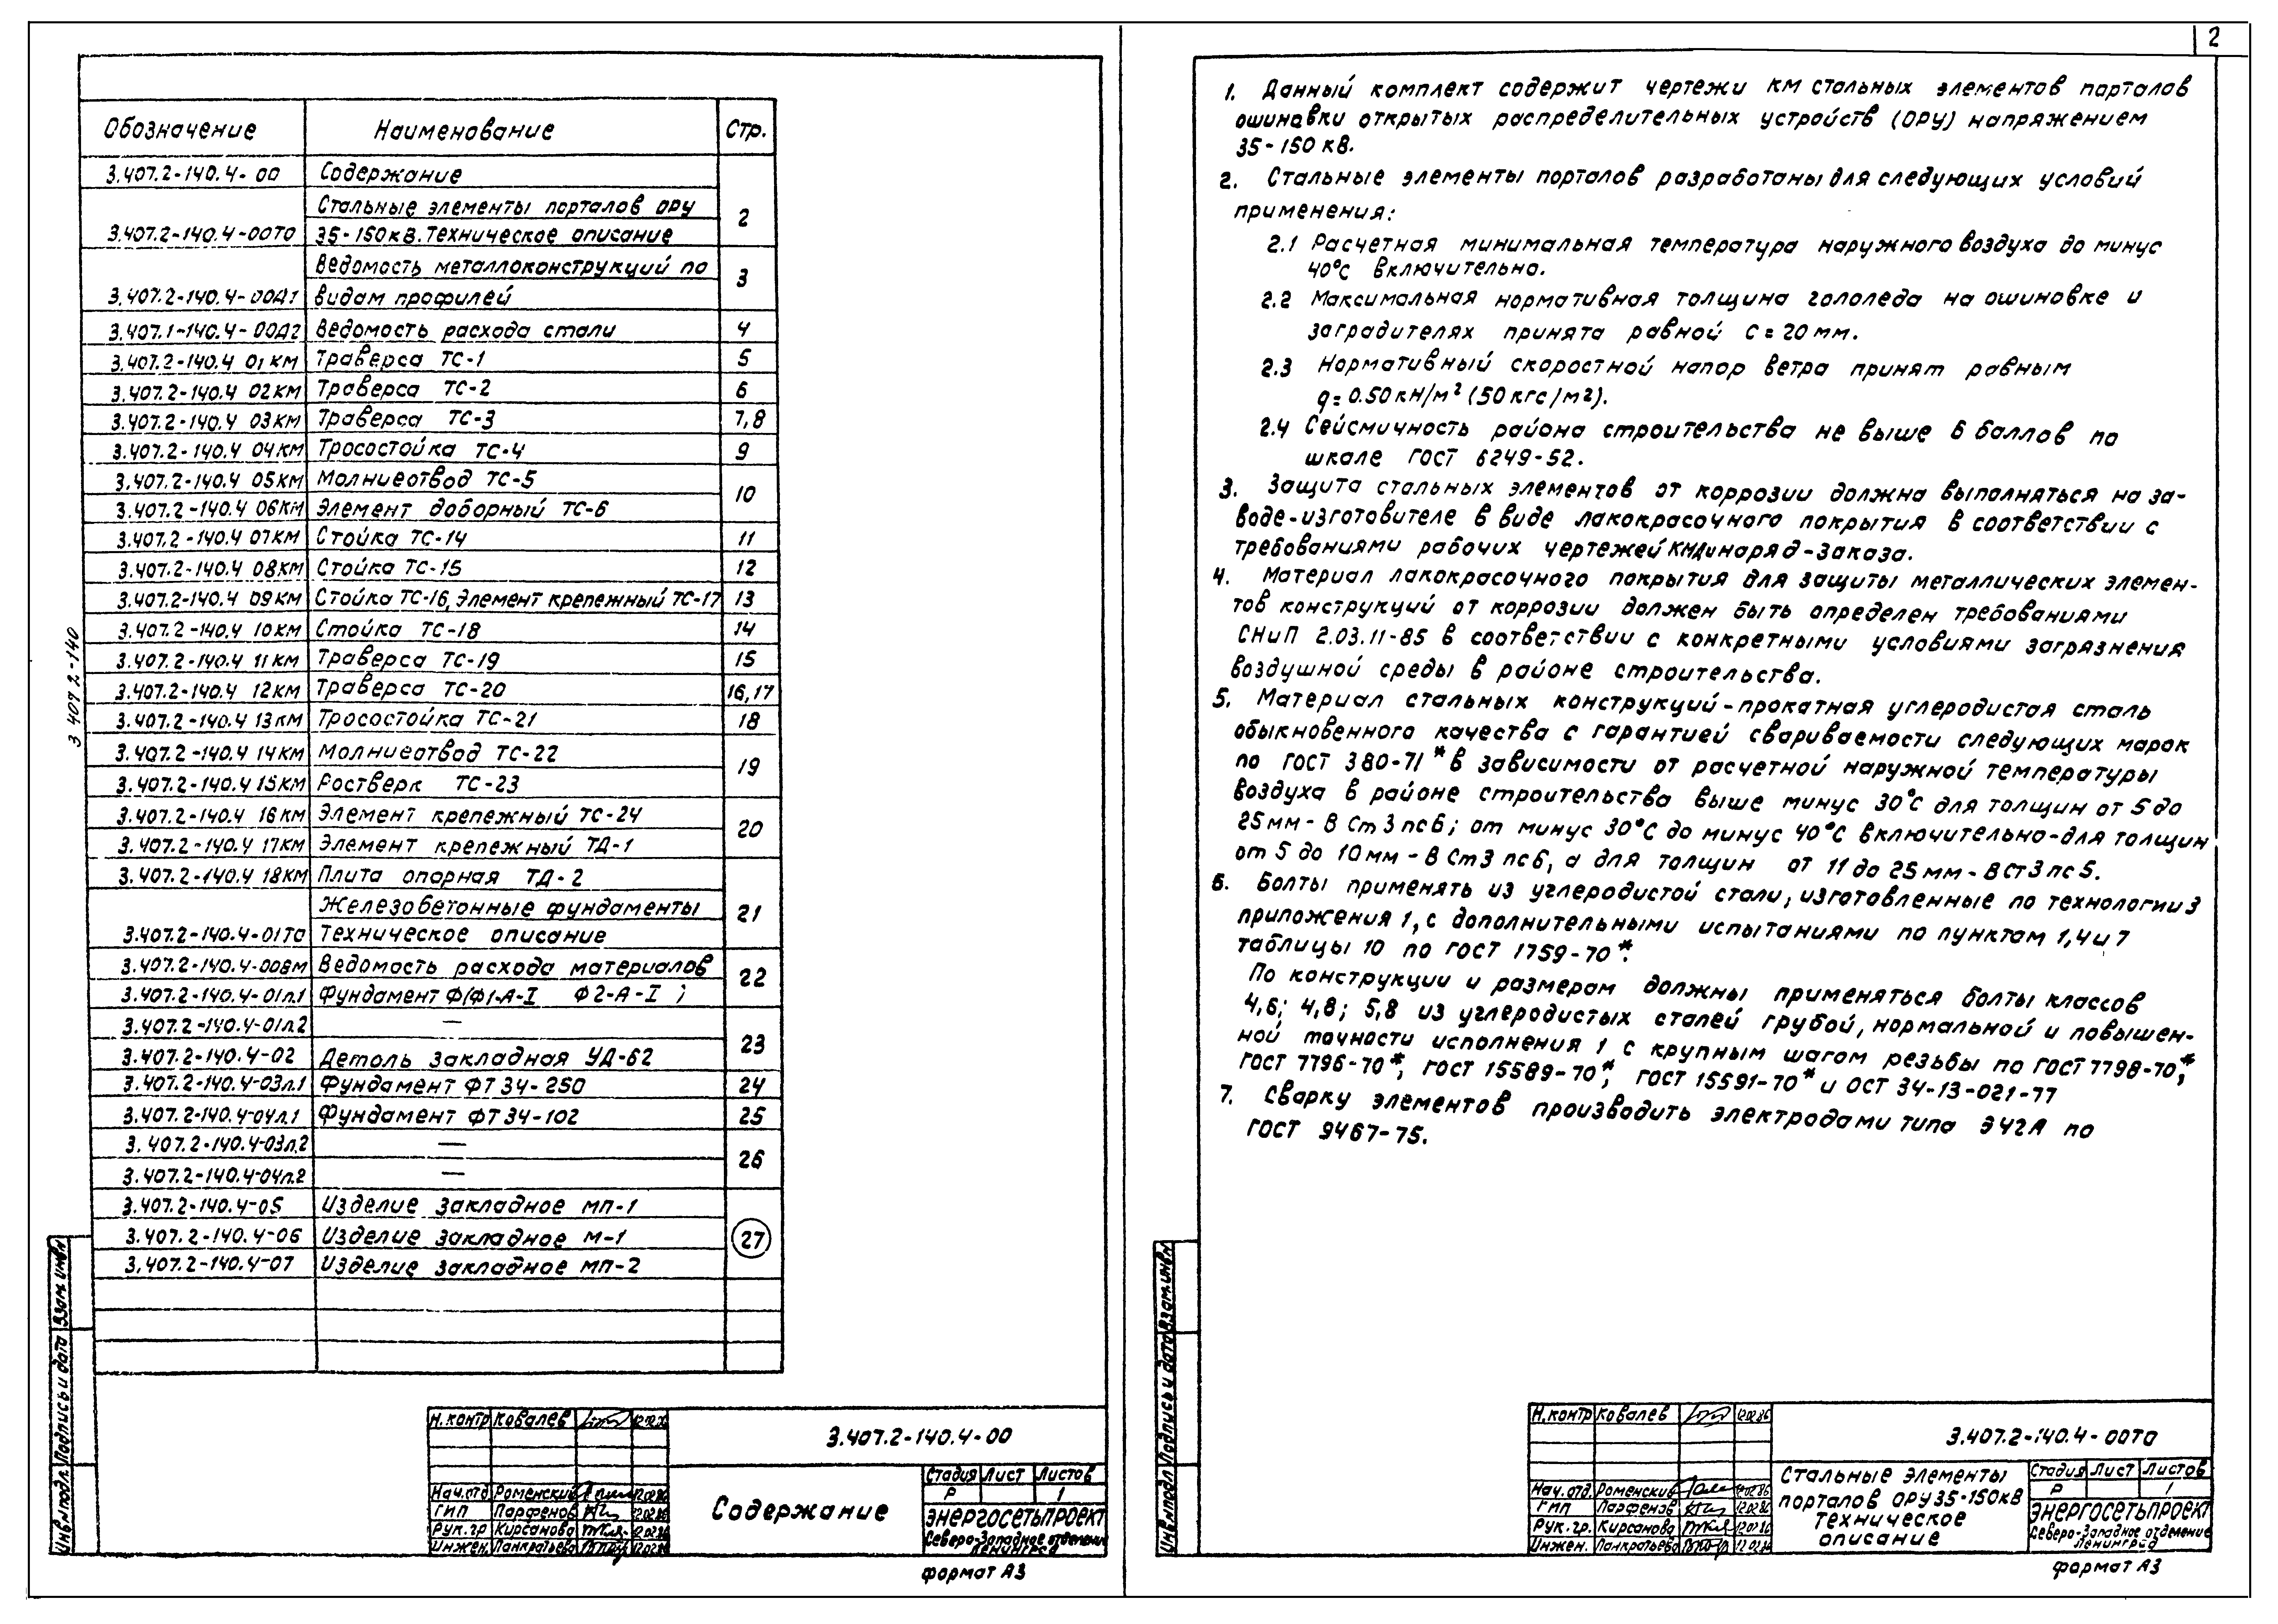 2
Обозначение Наименование Стр.
3.407.2-140.4-00 Содержание
Стальные элементы порталов ОРУ
3.407.2-140.4-00ТО 35-150кВ. Техническое описание 2
Ведомость металлоконструкций по
3.407.2-140.4-00Д1 видам профилей 3
3.407.1-140.4-00Д2 Ведомость расхода стали 4
3.407.2-140.4 01КМ Траверса ТС-1 5
3.407.2-140.4 02КМ Траверса ТС-2 6
3.407.2-140.4 03КМ Траверса ТС-3 7,8
3.407.2-140.4 04КМ Тросостойка ТС-4 9
3.407.2-140.4 05КМ Молниеотвод ТС-5
3.407.2-140.4 06КМ Элемент доборный ТС-6 10
3.407.2-140.4 07КМ Стойка ТС-14 11
3.407.2-140.4 08КМ Стойка ТС-15 12
3.407.2-140.4 09КМ Стойка ТС-16, Элемент крепежный ТС-17 13
3.407.2-140.4 10КМ Стойка ТС-18 14
3.407.2-140.4 11КМ Траверса ТС-19 15
3.407.2-140.4 12КМ Траверса ТС-20 16,17
3.407.2-140.4 13КМ Тросостойка ТС-21 18
3.407.2-140.4 14КМ Молниеотвод ТС-22
3.407.2-140.4 15КМ Ростверк ТС-23 19
3.407.2-140.4 16КМ Элемент крепежный ТС-24
3.407.2-140.4 17КМ Элемент крепежный ТД-1 20
3.407.2-140.4 18КМ Плита опорная ТД-2
Железобетонные фундаменты
3.407.2-140.4-01ТО Техническое описание 21
3.407.2-140.4-00ВМ Ведомость расхода материалов
3.407.2-140.4-01л.1 Фундамент Ф(Ф1-А-I Ф2-А-I ) 22
3.407.2-140.4-01л.2 —
3.407.2-140.4-02 Деталь закладная УД-62 23
3.407.2-140.4-03л.1 Фундамент ФТ 34-250 24
3.407.2-140.4-04л.1 Фундамент ФТ 34-102 25
3.407.2-140.4-03л.2 —
3.407.2-140.4-04л.2 — 26
3.407.2-140.4-05 Изделие закладное МП-1
3.407.2-140.4-06 Изделие закладное М-1 27
3.407.2-140.4-07 Изделие закладное МП-2
3 407 2-140
Взам.инв№
Подпись и дата
Инв№подл.
Н.контр Ковалев
3.407.2-140.4-00
Нач.отд Роменский 12.02.86
ГИП Парфенов 12.02.86
Рук.гр Кирсанова 12.02.86
Инжен. Панкратьева 12.02.86
Содержание
Стадия Лист Листов
Р 1
ЭНЕРГОСЕТЬПРОЕКТ
Северо-Западное отделение
Ленинград
формат А3
1. Данный комплект содержит чертежи КМ стальных элементов порталов
ошиновки открытых распределительных устройств (ОРУ) напряжением
35-150 кВ.
2. Стальные элементы порталов разработаны для следующих условий
применения:
2.1 Расчетная минимальная температура наружного воздуха до минус
40°С включительно.
2.2 Максимальная нормативная толщина гололеда на ошиновке и
заградителях принята равной с = 20 мм.
2.3 Нормативный скоростной напор ветра принят равным
q = 0.50 кН/м² (50 кгс/м²).
2.4 Сейсмичность района строительства не выше 6 баллов по
шкале ГОСТ 6249-52.
3. Защита стальных элементов от коррозии должна выполняться на за-
воде-изготовителе в виде лакокрасочного покрытия в соответствии с
требованиями рабочих чертежей КМД и наряд-заказа.
4. Материал лакокрасочного покрытия для защиты металлических элемен-
тов конструкций от коррозии должен быть определен требованиями
СНиП 2.03.11-85 в соответствии с конкретными условиями загрязнения
воздушной среды в районе строительства.
5. Материал стальных конструкций-прокатная углеродистая сталь
обыкновенного качества с гарантией свариваемости следующих марок
по ГОСТ 380-71* в зависимости от расчетной наружной температуры
воздуха в районе строительства выше минус 30°С для толщин от 5 до
25мм - В Ст 3 пс 6; от минус 30°С до минус 40°С включительно-для толщин
от 5 до 10мм - В Ст3 пс6, а для толщин от 11 до 25 мм - В Ст3 пс 5.
6. Болты применять из углеродистой стали, изготовленные по технологии 3
приложения 1, с дополнительными испытаниями по пунктам 1,4 и 7
таблицы 10 по ГОСТ 1759-70*.
По конструкции и размерам должны применяться болты классов
4,6; 4,8; 5,8 из углеродистых сталей грубой, нормальной и повышен-
ной точности исполнения 1 с крупным шагом резьбы по ГОСТ 7798-70*,
ГОСТ 7796-70*, ГОСТ 15589-70*, ГОСТ 15591-70* и ОСТ 34-13-021-77
7. Сварку элементов производить электродами типа Э42А по
ГОСТ 9467-75.
Взам.инв№
Подпись и дата
Инв№подл
Н.контр Ковалев 12.02.86
3.407.2-140.4-00ТО
Нач.отд. Роменский 12.02.86
ГИП Парфенов 12.02.86
Рук.гр. Кирсанова 12.02.86
Инжен. Панкратьева 12.02.86
Стальные элементы
порталов ОРУ 35-150кВ
Техническое
описание
Стадия Лист Листов
Р 1
ЭНЕРГОСЕТЬПРОЕКТ
Северо-Западное отделение
Ленинград
формат А3